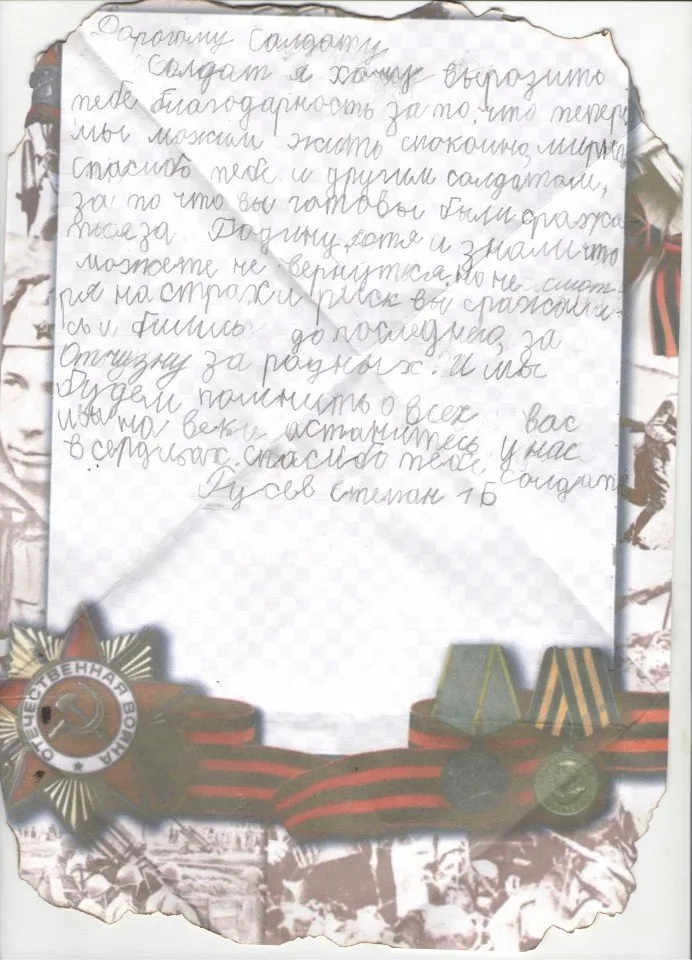 Дорогому Солдату
Солдат я хочу выразить
тебе благодарность за то, что теперь
мы можим жить спокоино, мирно,
спасибо тебе и другим солдатам,
за то что вы готовы были сража-
ться за Родину, хотя и знали что
можете не вернуться, но не смот-
ря на страх и риск вы сражали-
сь и бились до последнего, за
Отчизну за родных. И мы
будем помнить о всех вас
и вы на веки останитесь у нас
в сердцах. Спасибо тебе солдат
Гусев Степан 1 Б
ОТЕЧЕСТВЕННАЯ ВОЙНА